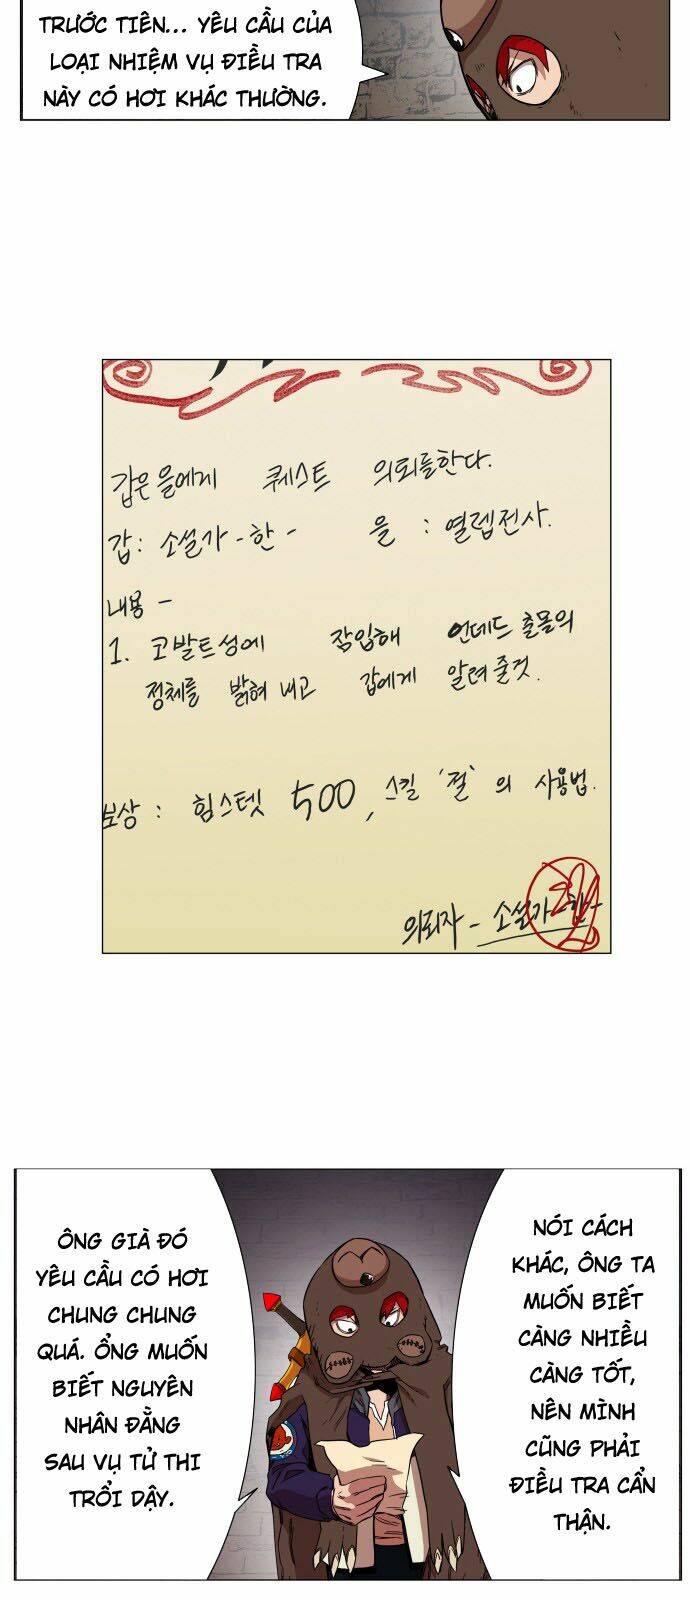 TRƯỚC TIÊN... YÊU CẦU CỦA
LOẠI NHIỆM VỤ ĐIỀU TRA
NÀY CÓ HƠI KHÁC THƯỜNG.
갑은 을에게 퀘스트 의뢰를한다.
갑: 소설가 -한- 을 : 열렙전사.
내용 -
1. 코발트성에 잠입해 언데드 출몰의
정체를 밝혀 내고 갑에게 알려 줄것.
보상 : 힘스텟 500, 스킬 '절'의 사용법.
의뢰자 - 소설가 -한-
ÔNG GIÀ ĐÓ
YÊU CẦU CÓ HƠI
CHUNG CHUNG
QUÁ. ỔNG MUỐN
BIẾT NGUYÊN
NHÂN ĐẰNG
SAU VỤ TỬ THI
TRỖI DẬY.
NÓI CÁCH
KHÁC, ÔNG TA
MUỐN BIẾT
CÀNG NHIỀU
CÀNG TỐT,
NÊN MÌNH
CŨNG PHẢI
ĐIỀU TRA CẨN
THẬN.